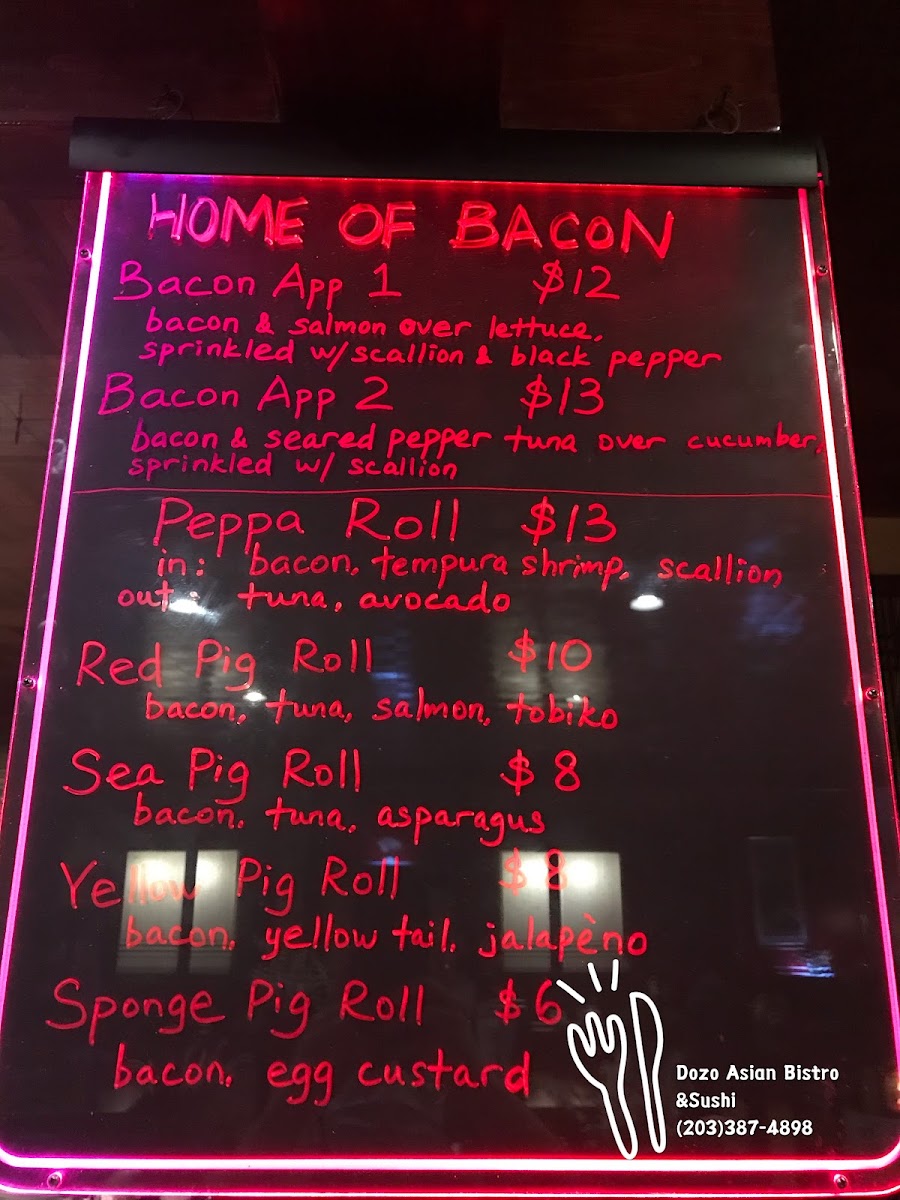 HOME OF BACON
Bacon App 1 $12
bacon & salmon over lettuce,
sprinkled w/ scallion & black pepper
Bacon App 2 $13
bacon & seared pepper tuna over cucumber,
sprinkled w/ scallion
Peppa Roll $13
in: bacon, tempura shrimp, scallion
out: tuna, avocado
Red Pig Roll $10
bacon, tuna, salmon, tobiko
Sea Pig Roll $8
bacon, tuna, asparagus
Yellow Pig Roll $8
bacon, yellow tail, jalapèno
Sponge Pig Roll $6
bacon, egg custard
Dozo Asian Bistro
&Sushi
(203)387-4898